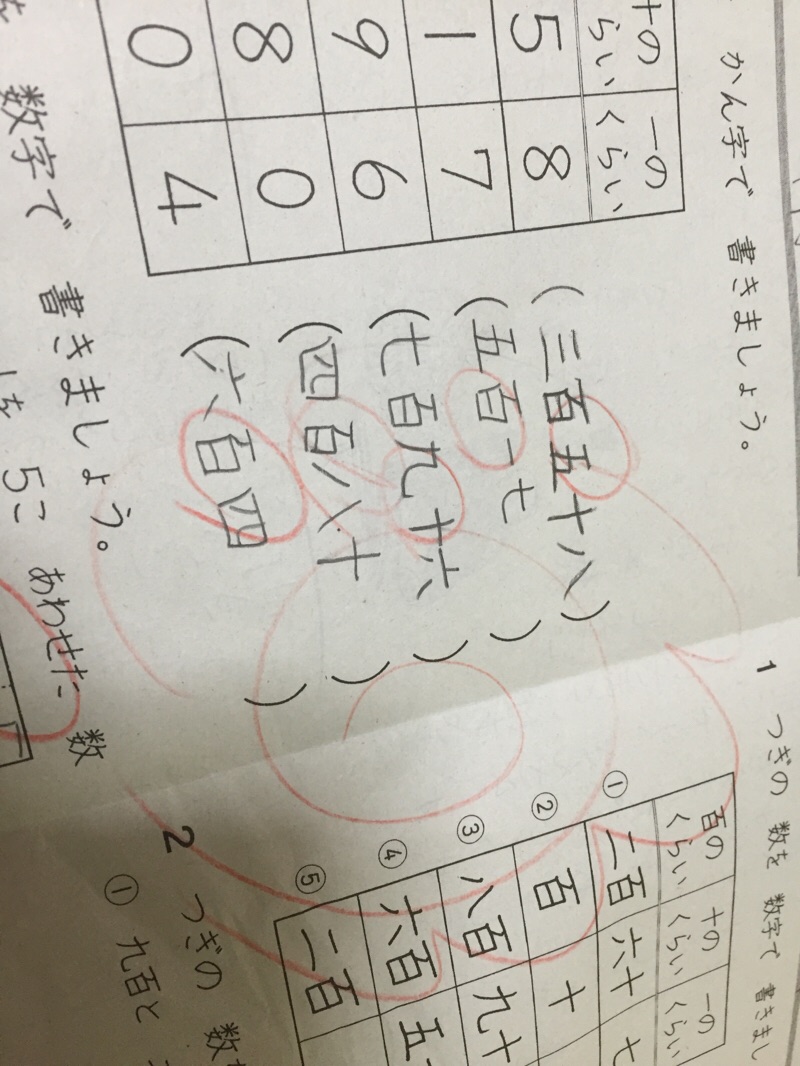 かん字で 書きましょう。
十の 一の
らい くらい
5 8 (三百五十八)
1 7 (五百一七)
9 6 (七百九十六)
8 0 (四百八十)
0 4 (六百四)
数字で 書きましょう。
を 5こ あわせた 数
1 つぎの 数を 数字で 書きまし
百の 十の 一の
くらい くらい くらい
① 二百 六十 七
② 百 十
③ 八百 九十
④ 六百 五
⑤ 二百
2 つぎの 数
① 九百と